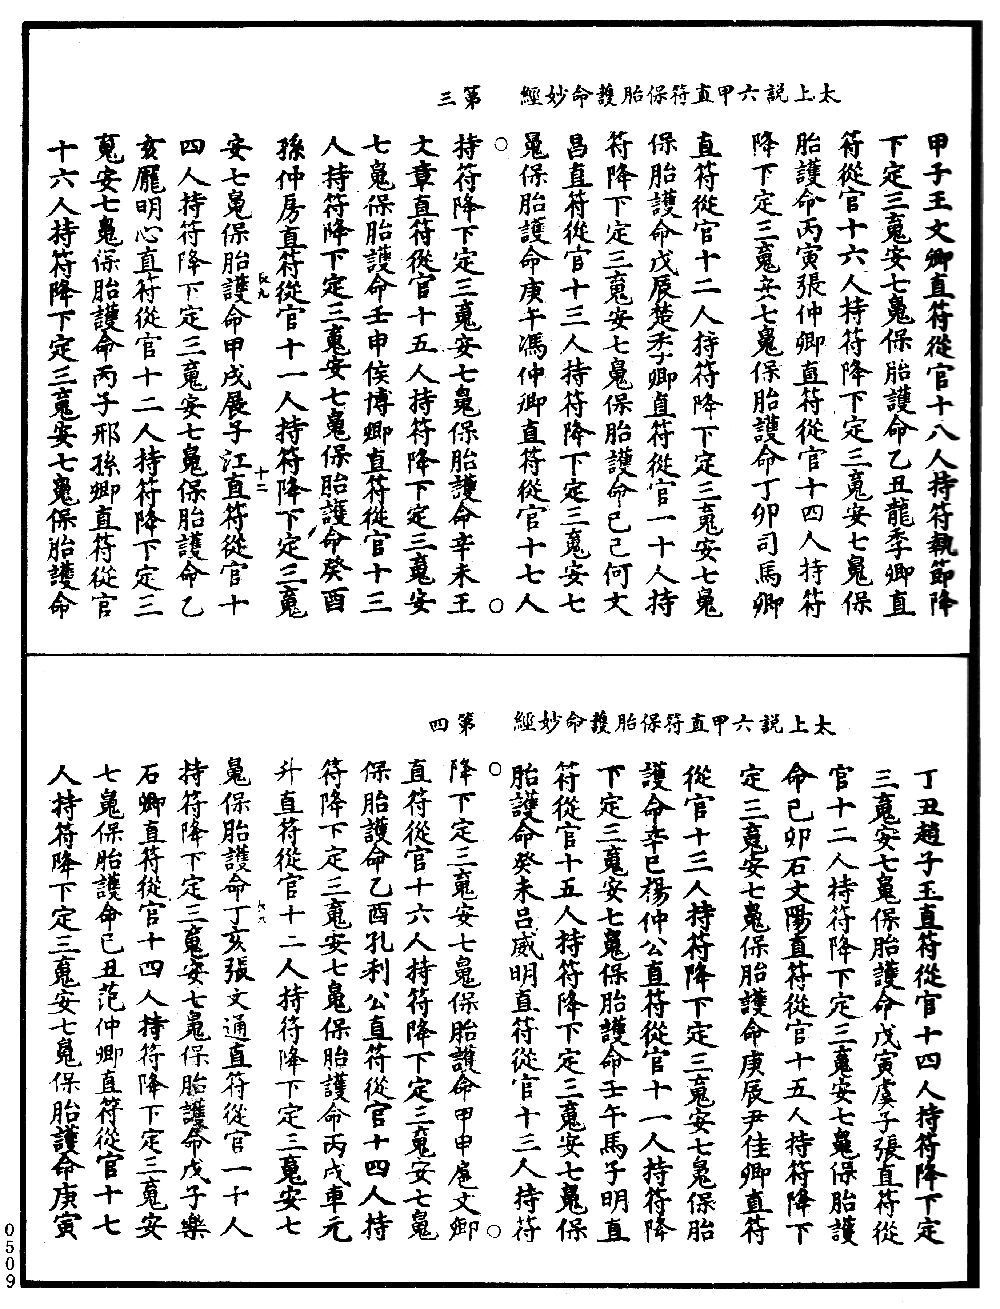 太上說六甲直符保胎護命妙經　第三
甲子王文卿直符從官十八人持符執節降
下定三䰟安七䰟保胎護命乙丑龍季卿直
符從官十六人持符降下定三䰟安七䰟保
胎護命丙寅張仲卿直符從官十四人持符
降下定三䰟安七䰟保胎護命丁卯司馬卿
直符從官十二人持符降下定三䰟安七䰟
保胎護命戊辰楚季卿直符從官一十人持
符降下定三䰟安七䰟保胎護命己巳何文
昌直符從官十三人持符降下定三䰟安七
䰟保胎護命庚午馮仲卿直符從官十七人
持符降下定三䰟安七䰟保胎護命辛未王
文章直符從官十五人持符降下定三䰟安
七䰟保胎護命壬申侯博卿直符從官十三
人持符降下定三䰟安七䰟保胎護命癸酉
孫仲房直符從官十一人持符降下定三䰟
安七䰟保胎護命甲戌展子江直符從官十
四人持符降下定三䰟安七䰟保胎護命乙
亥龐明心直符從官十二人持符降下定三
䰟安七䰟保胎護命丙子邢孫卿直符從官
十六人持符降下定三䰟安七䰟保胎護命
太上說六甲直符保胎護命妙經　第四
丁丑趙子玉直符從官十四人持符降下定
三䰟安七䰟保胎護命戊寅虞子張直符從
官十二人持符降下定三䰟安七䰟保胎護
命己卯石文陽直符從官十五人持符降下
定三䰟安七䰟保胎護命庚辰尹佳卿直符
從官十三人持符降下定三䰟安七䰟保胎
護命辛巳楊仲公直符從官十一人持符降
下定三䰟安七䰟保胎護命壬午馬子明直
符從官十五人持符降下定三䰟安七䰟保
胎護命癸未呂威明直符從官十三人持符
降下定三䰟安七䰟保胎護命甲申扈文卿
直符從官十六人持符降下定三䰟安七䰟
保胎護命乙酉孔利公直符從官十四人持
符降下定三䰟安七䰟保胎護命丙戌車元
升直符從官十二人持符降下定三䰟安七
䰟保胎護命丁亥張文通直符從官一十人
持符降下定三䰟安七䰟保胎護命戊子樂
石卿直符從官十四人持符降下定三䰟安
七䰟保胎護命己丑范仲卿直符從官十七
人持符降下定三䰟安七䰟保胎護命庚寅
0509